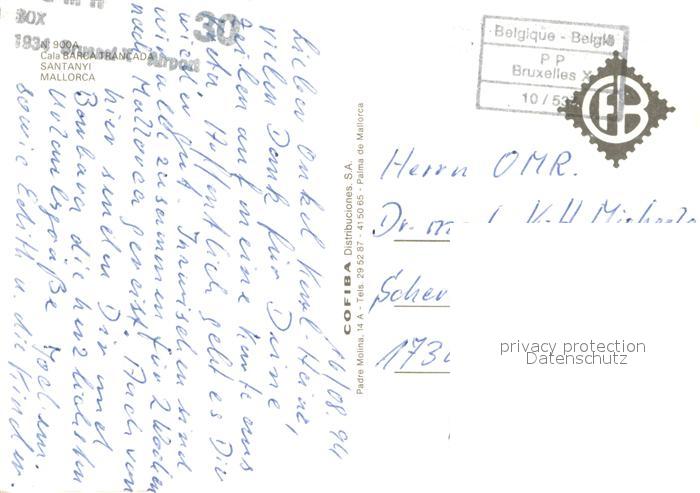 BOX
1934
30
N 900A
Cala BARCA TRANCADA
SANTANYI
MALLORCA
Belgique - België
P P
Bruxelles X
10 / 53
16/08. 94
Lieber Onkel Karl-Heinz,
vielen Dank für Deine
Zeilen auf meine Karte aus
Hoffentlich geht es Dir
wieder gut. Inzwischen sind
wir alle zusammen für 2 Wochen
nach Mallorca gereist. Auch von
hier senden Dir und
Barbara die herzlichsten
Urlaubsgrüße Jochen
sowie Edith u. die Kinder.
COFIBA Distribuciones, S.A.
Padre Molina, 14 A - Tels. 29 52 87 - 41 50 65 - Palma de Mallorca
Herrn OMR.
Dr. m
Scher
173
privacy protection
Datenschutz